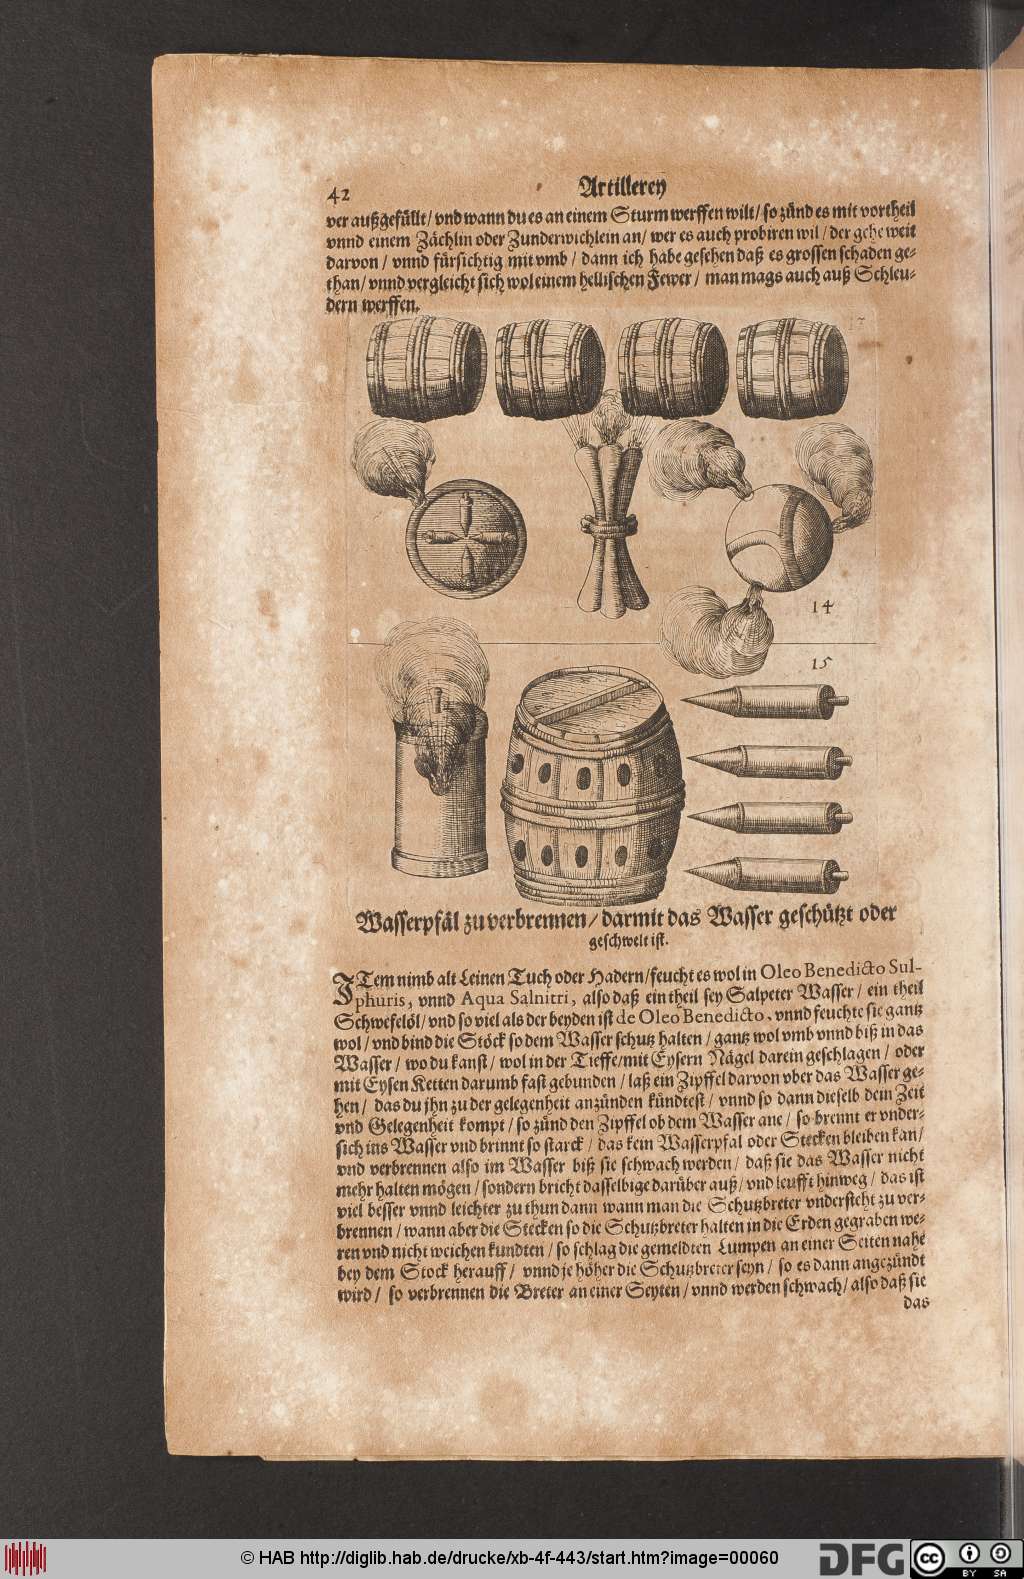 42 Artillerey
ver außgefüllt/ vnd wann du es an einem Sturm werffen wilt/ so zünd es mit vortheil
vnnd einem Zächlin oder Zunderwichlein an/ wer es auch probiren wil/ der gehe weit
darvon/ vnnd fürsichtig mit vmb/ dann ich habe gesehen daß es grossen schaden ge-
than/ vnnd vergleicht sich wol einem hellischen Fewer/ man mags auch auß Schleu-
dern werffen.
17
14
15
Wasserpfäl zu verbrennen/ darmit das Wasser geschützt oder
geschwelt ist.
ITem nimb alt Leinen Tuch oder Hadern/ feucht es wol in Oleo Benedicto Sul-
phuris, vnnd Aqua Salnitri, also daß ein theil sey Salpeter Wasser/ ein theil
Schwefelöl/ vnd so viel als der beyden ist de Oleo Benedicto, vnnd feuchte sie gantz
wol/ vnd bind die Stöck so dem Wasser schutz halten/ gantz wol vmb vnnd biß in das
Wasser/ wo du kanst/ wol in der Tieffe/ mit Eysern Nägel darein geschlagen/ oder
mit Eysen Ketten darumb fast gebunden/ laß ein Zipffel darvon vber das Wasser ge-
hen/ das du jhn zu der gelegenheit anzünden kündtest/ vnnd so dann dieselb dein Zeit
vnd Gelegenheit kompt/ so zünd den Zipffel ob dem Wasser ane/ so brennt er vnder-
sich ins Wasser vnd brinnt so starck/ das kein Wasserpfal oder Stecken bleiben kan/
vnd verbrennen also im Wasser biß sie schwach werden/ daß sie das Wasser nicht
mehr halten mögen/ sondern bricht dasselbige darüber auß/ vnd leufft hinweg/ das ist
viel besser vnnd leichter zu thun dann wann man die Schutzbreter vndersteht zu ver-
brennen/ wann aber die Stecken so die Schutzbreter halten in die Erden gegraben we-
ren vnd nicht weichen kundten/ so schlag die gemeldten Lumpen an einer Seiten nahe
bey dem Stock herauff/ vnnd je höher die Schutzbreter seyn/ so es dann angezündt
wird/ so verbrennen die Breter an einer Seyten/ vnnd werden schwach/ also daß sie
das
© HAB http://diglib.hab.de/drucke/xb-4f-443/start.htm?image=00060
DFG
cc BY SA